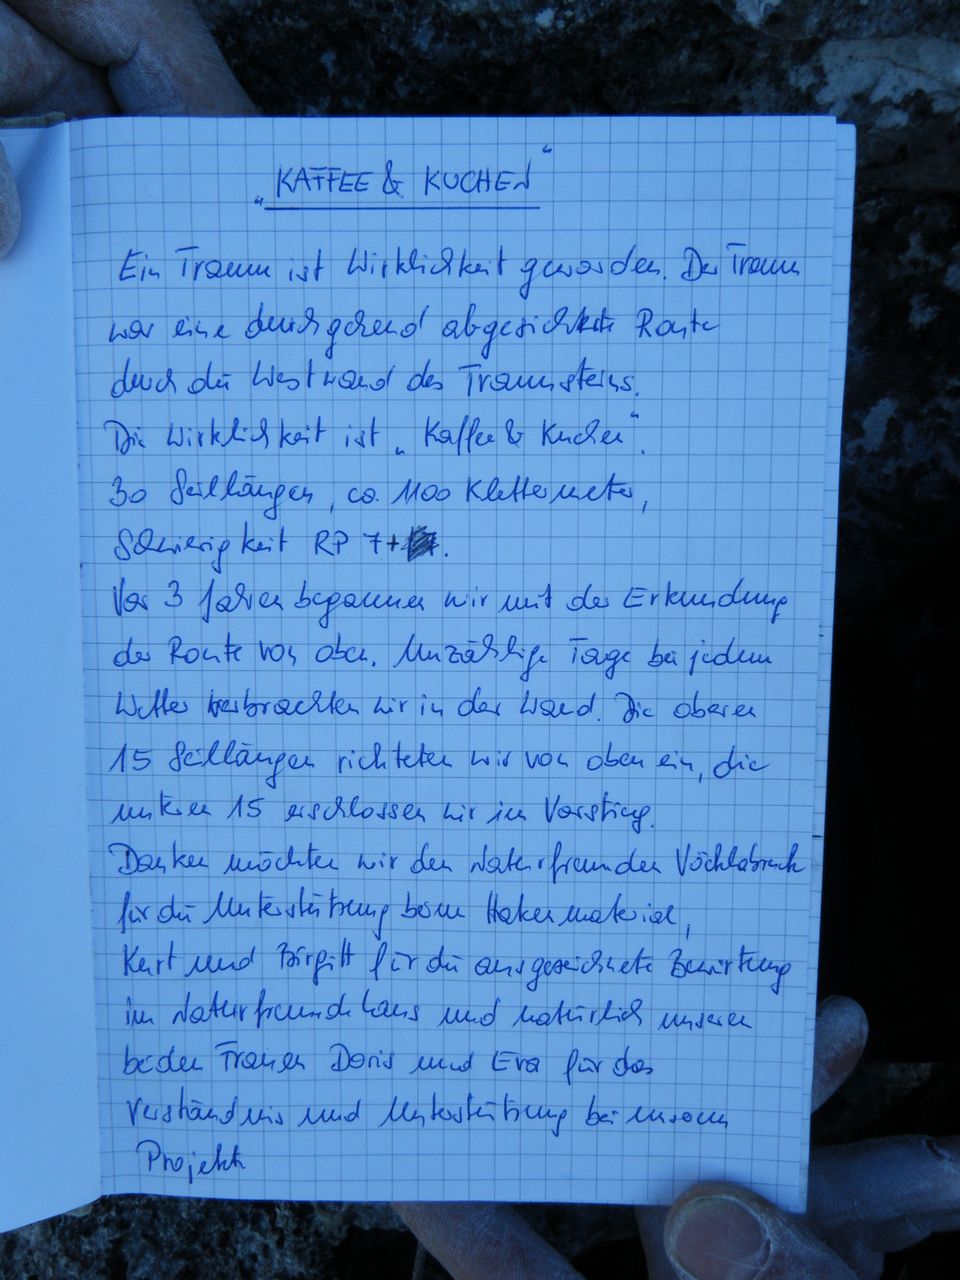 „KAFFEE & KUCHEN“
Ein Traum ist Wirklichkeit geworden. Der Traum
war eine durchgehend abgesicherte Route
durch die Westwand des Traunsteins.
Die Wirklichkeit ist „Kaffee & Kuchen“.
30 Seillängen, ca. 1100 Klettermeter,
Schwierigkeit RP 7+.
Vor 3 Jahren begannen wir mit der Erkundung
der Route von oben. Unzählige Tage bei jedem
Wetter verbrachten wir in der Wand. Die oberen
15 Seillängen richteten wir von oben ein, die
unteren 15 erschlossen wir im Vorstieg.
Danken möchten wir den Naturfreunden Vöcklabruck
für die Unterstützung beim Hakenmaterial,
Kurt und Birgitt für die ausgezeichnete Bewirtung
im Naturfreundehaus und natürlich unseren
beiden Frauen Doris und Eva für das
Verständnis und Unterstützung bei unserem
Projekt